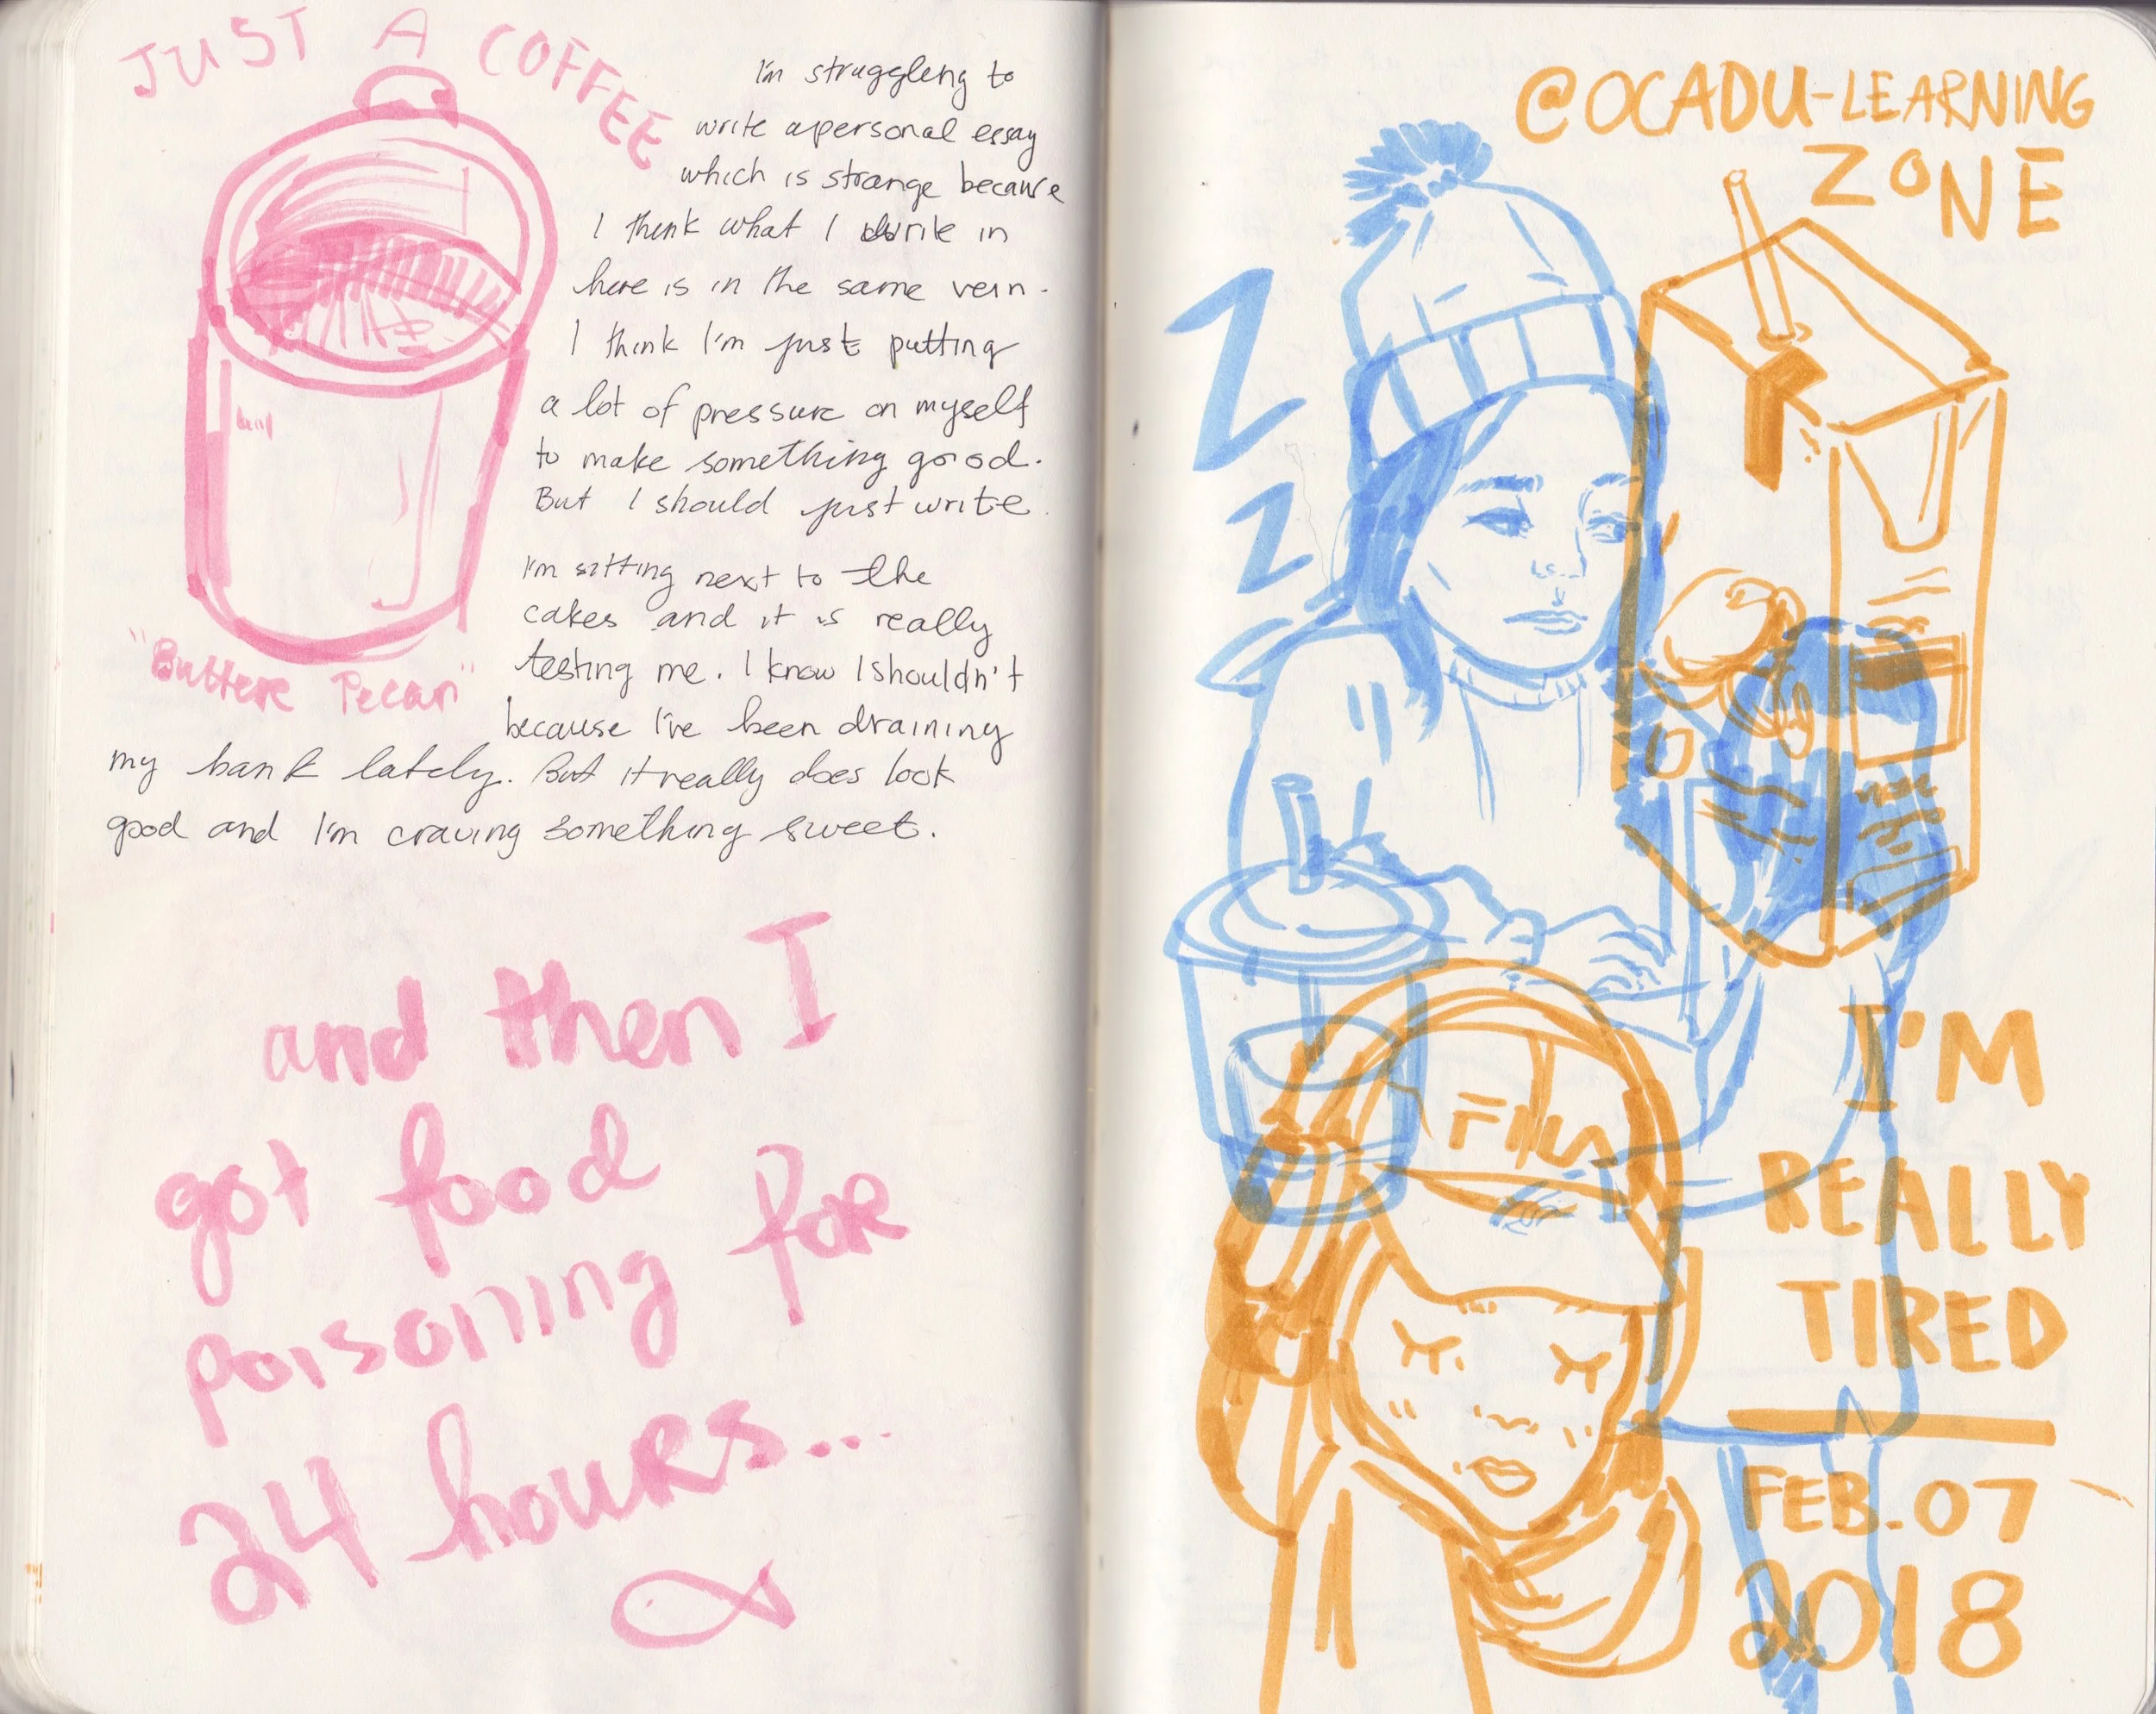 JUST A COFFEE
I'm struggling to
write a personal essay
which is strange because
I think what I write in
here is in the same vein.
I think I'm just putting
a lot of pressure on myself
to make something good.
But I should just write.
I'm sitting next to the
cakes and it is really
testing me. I know I shouldn't
because I've been draining
my bank lately. But it really does look
good and I'm craving something sweet.
"Buttere Pecan"
and then I
got food
poisoning for
24 hours...
@OCADU-LEARNING
ZONE
Z
Z
I'M
REALLY
TIRED
FEB. 07
2018